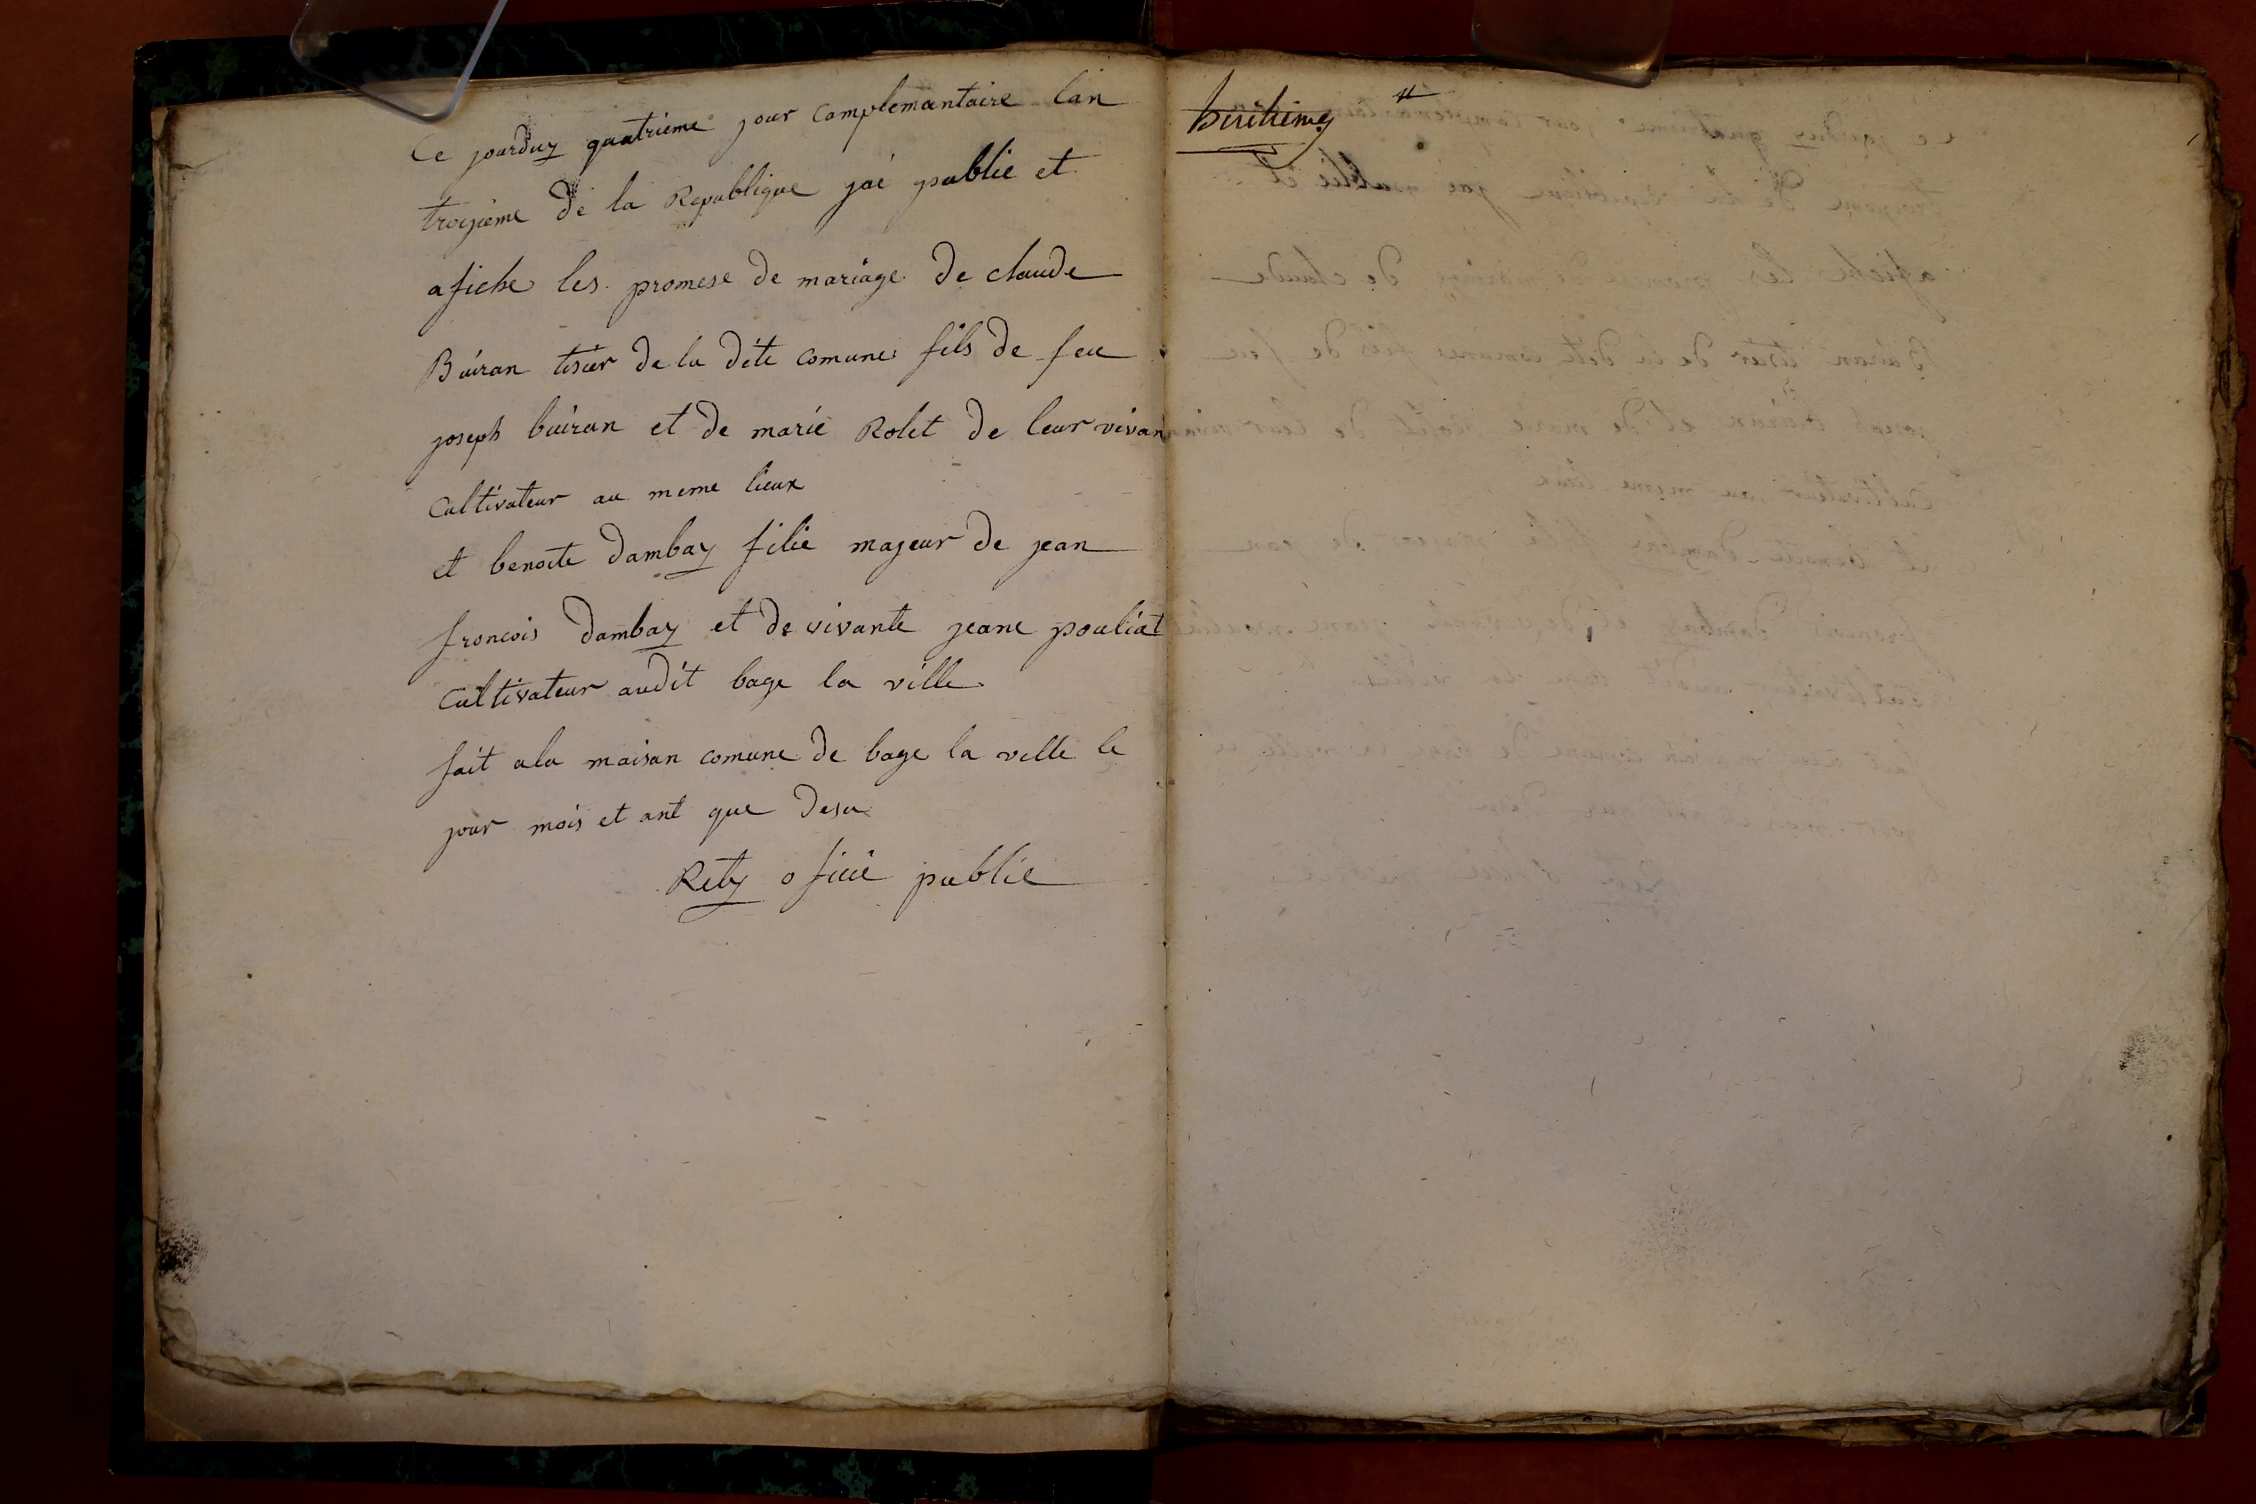 Ce jourduy quatrieme jour complemantaire lan
troisieme de la Republique jai publie et
afiche les promese de mariage de claude
Buiran tisier de la dite comune fils de feu
joseph buiran et de marie Rolet de leur vivan
Cultivateur au meme lieux
et benoite dambay filie majeur de jean
froncois dambay et de vivante jeane pouliat
Cultivateur audit bage la ville
fait ala maison comune de bage la ville le
jour mois et ant que desu
Rety oficie publie